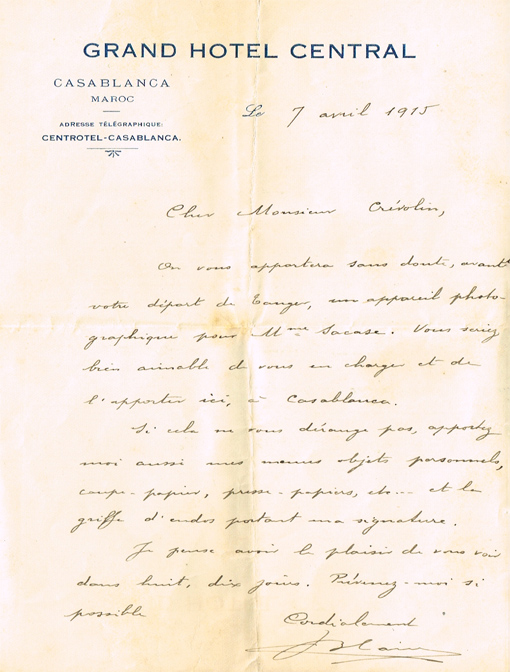 GRAND HOTEL CENTRAL
CASABLANCA
MAROC
ADRESSE TÉLÉGRAPHIQUE:
CENTROTEL-CASABLANCA.
Le 7 avril 1915
Cher Monsieur Crévolin,
On vous apportera sans doute, avant
votre départ de Tanger, un appareil photo-
graphique pour Mme Sacase. Vous seriez
bien aimable de vous en charger et de
l'apporter ici, à Casablanca.
Si cela ne vous dérange pas, apportez
moi aussi mes menus objets personnels,
coupe-papier, presse-papiers, etc... et la
griffe d'endos portant ma signature.
Je pense avoir le plaisir de vous voir
dans huit, dix jours. Prévenez-moi si
possible
Cordialement